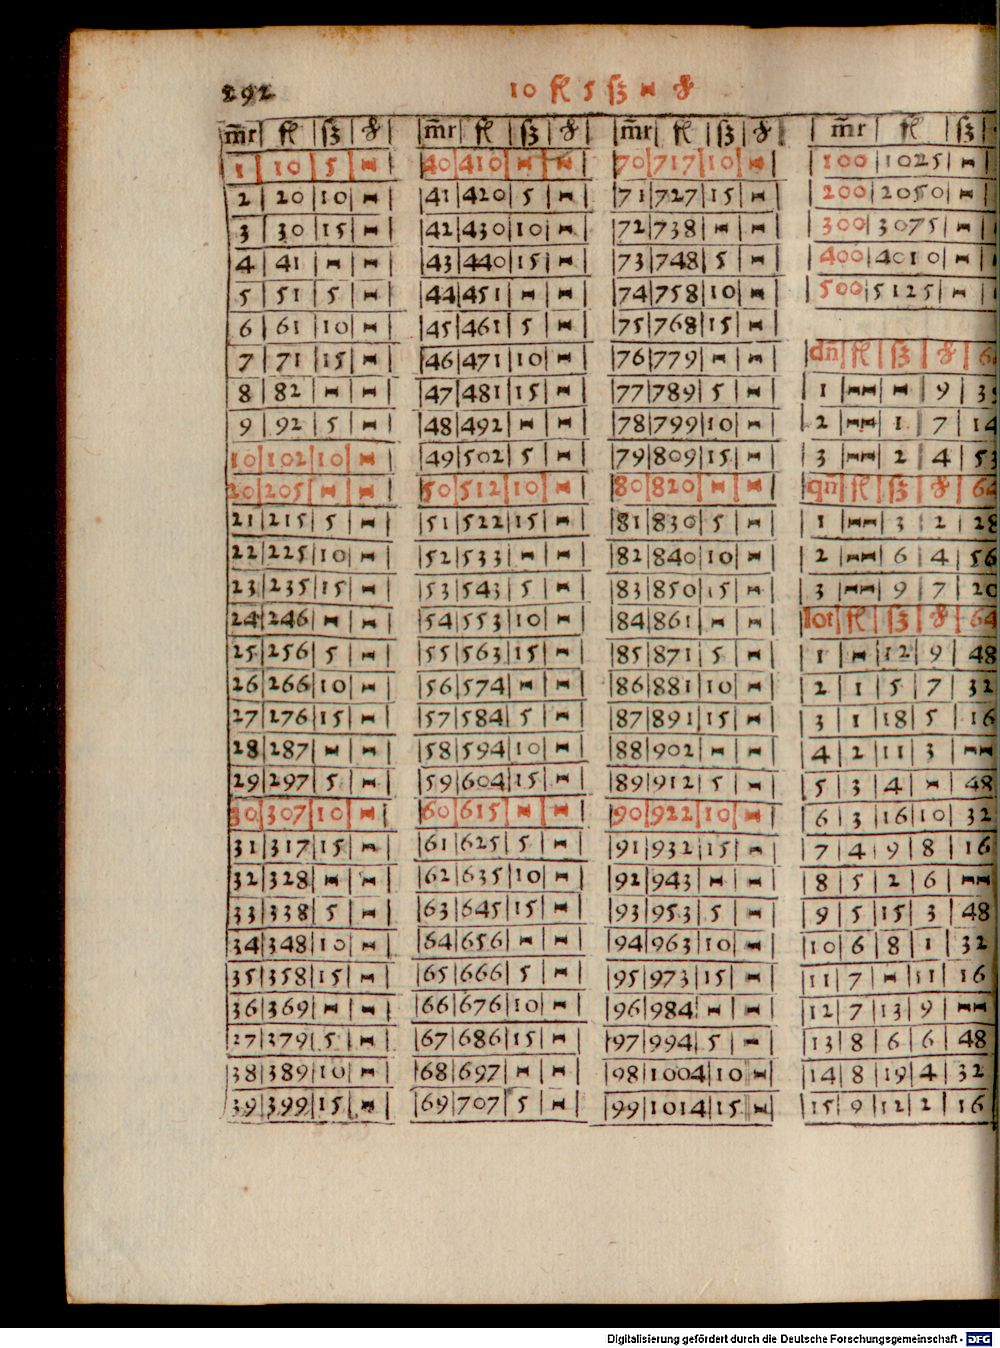 292
10 fl 5 ß - ₰
m̄r | fl | ß | ₰
1 | 10 | 5 | -
2 | 20 | 10 | -
3 | 30 | 15 | -
4 | 41 | - | -
5 | 51 | 5 | -
6 | 61 | 10 | -
7 | 71 | 15 | -
8 | 82 | - | -
9 | 92 | 5 | -
10 | 102 | 10 | -
20 | 205 | - | -
21 | 215 | 5 | -
22 | 225 | 10 | -
23 | 235 | 15 | -
24 | 246 | - | -
25 | 256 | 5 | -
26 | 266 | 10 | -
27 | 276 | 15 | -
28 | 287 | - | -
29 | 297 | 5 | -
30 | 307 | 10 | -
31 | 317 | 15 | -
32 | 328 | - | -
33 | 338 | 5 | -
34 | 348 | 10 | -
35 | 358 | 15 | -
36 | 369 | - | -
37 | 379 | 5 | -
38 | 389 | 10 | -
39 | 399 | 15 | -
m̄r | fl | ß | ₰
40 | 410 | - | -
41 | 420 | 5 | -
42 | 430 | 10 | -
43 | 440 | 15 | -
44 | 451 | - | -
45 | 461 | 5 | -
46 | 471 | 10 | -
47 | 481 | 15 | -
48 | 492 | - | -
49 | 502 | 5 | -
50 | 512 | 10 | -
51 | 522 | 15 | -
52 | 533 | - | -
53 | 543 | 5 | -
54 | 553 | 10 | -
55 | 563 | 15 | -
56 | 574 | - | -
57 | 584 | 5 | -
58 | 594 | 10 | -
59 | 604 | 15 | -
60 | 615 | - | -
61 | 625 | 5 | -
62 | 635 | 10 | -
63 | 645 | 15 | -
64 | 656 | - | -
65 | 666 | 5 | -
66 | 676 | 10 | -
67 | 686 | 15 | -
68 | 697 | - | -
69 | 707 | 5 | -
m̄r | fl | ß | ₰
70 | 717 | 10 | -
71 | 727 | 15 | -
72 | 738 | - | -
73 | 748 | 5 | -
74 | 758 | 10 | -
75 | 768 | 15 | -
76 | 779 | - | -
77 | 789 | 5 | -
78 | 799 | 10 | -
79 | 809 | 15 | -
80 | 820 | - | -
81 | 830 | 5 | -
82 | 840 | 10 | -
83 | 850 | 15 | -
84 | 861 | - | -
85 | 871 | 5 | -
86 | 881 | 10 | -
87 | 891 | 15 | -
88 | 902 | - | -
89 | 912 | 5 | -
90 | 922 | 10 | -
91 | 932 | 15 | -
92 | 943 | - | -
93 | 953 | 5 | -
94 | 963 | 10 | -
95 | 973 | 15 | -
96 | 984 | - | -
97 | 994 | 5 | -
98 | 1004 | 10 | -
99 | 1014 | 15 | -
m̄r | fl | ß
100 | 1025 | -
200 | 2050 | -
300 | 3075 | -
400 | 4010 | -
500 | 5125 | -
dn̄ | fl | ß | ₰ | 6
1 | -- | - | 9 | 3
2 | -- | 1 | 7 | 14
3 | -- | 2 | 4 | 53
qn̄ | fl | ß | ₰ | 64
1 | -- | 3 | 2 | 28
2 | -- | 6 | 4 | 56
3 | -- | 9 | 7 | 20
lot | fl | ß | ₰ | 64
1 | - | 12 | 9 | 48
2 | 1 | 5 | 7 | 32
3 | 1 | 18 | 5 | 16
4 | 2 | 11 | 3 | --
5 | 3 | 4 | - | 48
6 | 3 | 16 | 10 | 32
7 | 4 | 9 | 8 | 16
8 | 5 | 2 | 6 | --
9 | 5 | 15 | 3 | 48
10 | 6 | 8 | 1 | 32
11 | 7 | - | 11 | 16
12 | 7 | 13 | 9 | --
13 | 8 | 6 | 6 | 48
14 | 8 | 19 | 4 | 32
15 | 9 | 12 | 2 | 16
Digitalisierung gefördert durch die Deutsche Forschungsgemeinschaft - DFG